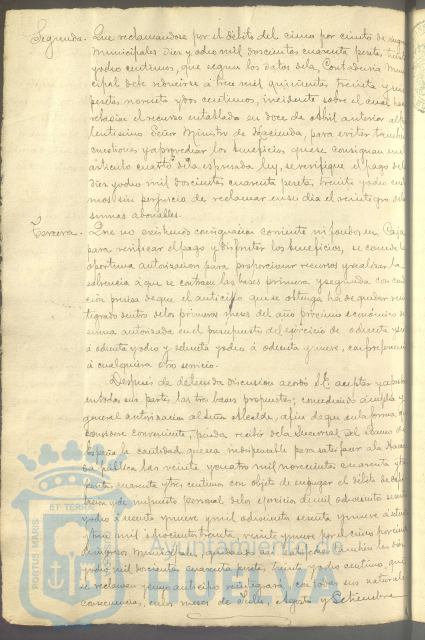 Segunda. Que reclamandose por el debito del cinco por ciento de
municipales diez y ocho mil doscientos cuarenta pesetas treinta
y ocho centimos, que segun los datos de la Contaduria Muni
cipal debe reducirse á trece mil quinientas treinta y
pesetas noventa y dos centimos, incidente sobre el cual
el recurso entablado en doce de Abril anterior al
lentisimo Señor Ministro de Hacienda, para evitar
cuestiones y aprovechar los beneficios que se consignan en
articulo cuarto de la expresada ley, se verifique el pago de
diez y ocho mil doscientas cuarenta pesetas treinta y ocho cen
mos sin perjuicio de reclamar en su dia el reintegro de
sumas abonables.
Tercera. Que no existiendo consignacion corriente ni fondos en Caja
para verificar el pago y disfrutar los beneficios, se conceda
oportuna autorizacion para proporcionar recursos y realizar la
solvencia á que se contraen las bases primera y segunda con
cion precisa de que el anticipo que se obtenga ha de quedar rein
tegrado dentro de los primeros meses del año próximo económico
suma autorizada en el presupuesto del ejercicio de ochenta y
á ochenta y ocho y ochenta y ocho á ochenta y nueve, con preferencia
á cualquiera otro servicio.
Despues de detenida discusion acordó S.E. aceptar y
en todas sus partes las tres bases propuestas, concediendo amplia y
general autorizacion al Señor Alcalde, a fin de que en la forma que
considere conveniente, pueda recibir de la Sucursal del Banco de
España la cantidad que sea indispensable para satisfacer á la Hacien
da publica las veinte y cuatro mil novecientas cuarenta y
pesetas cuarenta y tres centimos con objeto de enjugar el debito de
y de impuesto personal de los ejercicios de mil ochocientos sesenta
y ocho á sesenta y nueve y mil ochocientos sesenta y nueve á setenta
y mil ochocientos treinta y nueve por el cinco por ciento
de ingresos municipales
y ocho mil doscientas cuarenta pesetas treinta y ocho centimos que
se reclaman y cuyo anticipo reintegrará, con todas sus naturales
consecuencias, en los meses de Julio, Agosto y Setiembre
PORTUS MARIS
ET TERRAE
Ayuntamiento de
HUELVA